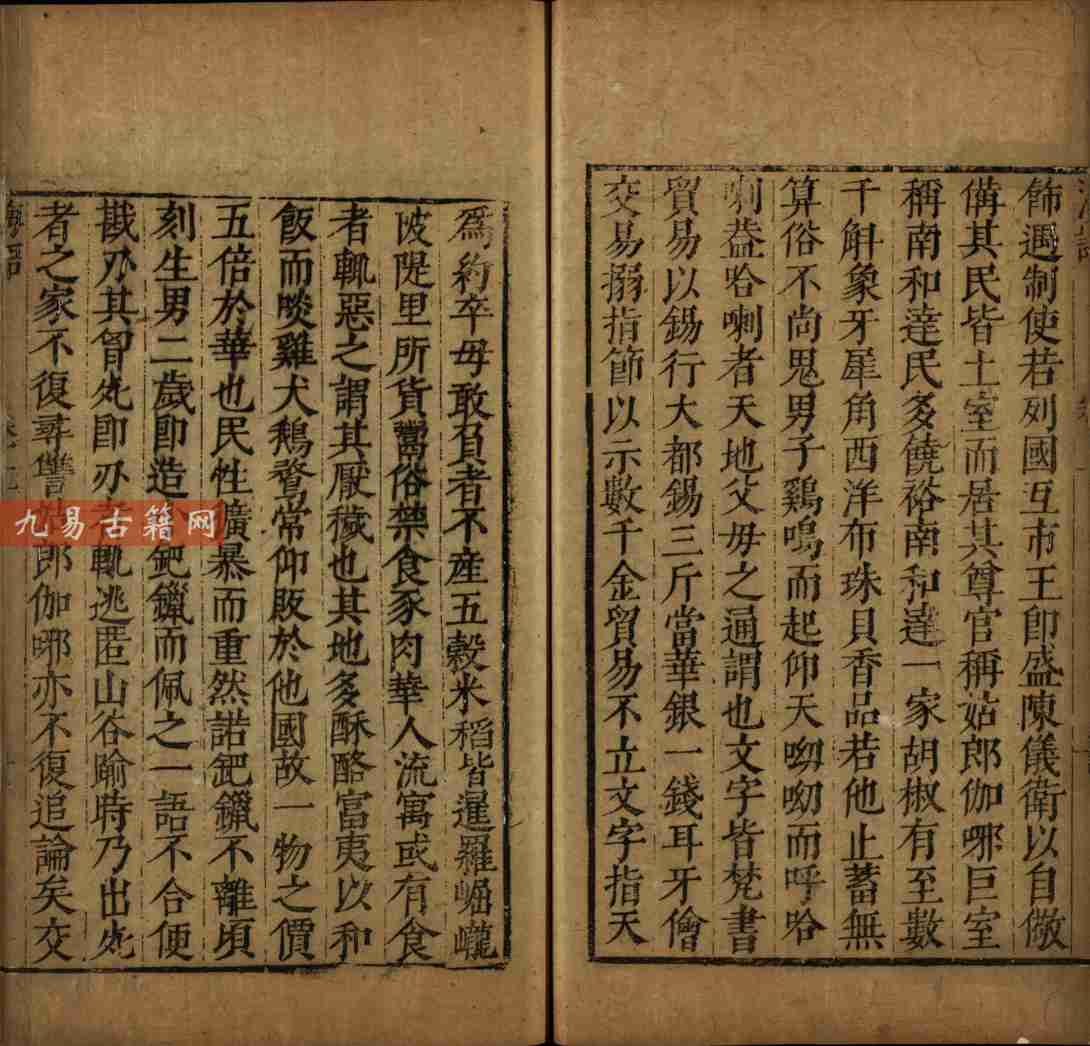 飾遇制使若列國互市王卽盛陳儀衛以自儆
備其民皆土室而居其尊官稱姑郎伽哪巨室
稱南和達民多饒裕南和達一家胡椒有至數
千斛象牙犀角西洋布珠貝香品若他止蓄無
算俗不尚鬼男子鷄鳴而起仰天呦呦而呼哈
喇葢哈喇者天地父毋之通謂也文字皆梵書
貿易以錫行大都錫三斤當華銀一錢耳牙儈
交易搦指節以示數千金貿易不立文字指天
爲約卒毋敢負者不產五穀米稻皆暹羅崛巃
陂隄里所貨鬻俗禁食豕肉華人流寓或有食
者輒惡之謂其厭穢也其地多酥酪富夷以和
飯而啖雞犬鵝鶩常仰販於他國故一物之價
五倍於華也民性獷暴而重然諾鈀鑞不離頃
刻生男二歲卽造小鈀鑞而佩之一語不合便
戡刅其胷䖏卽刅者輒逃匿山谷踰時乃出䖏
者之家不復尋讐姑郎伽哪亦不復追論矣交
海語
九易古籍网